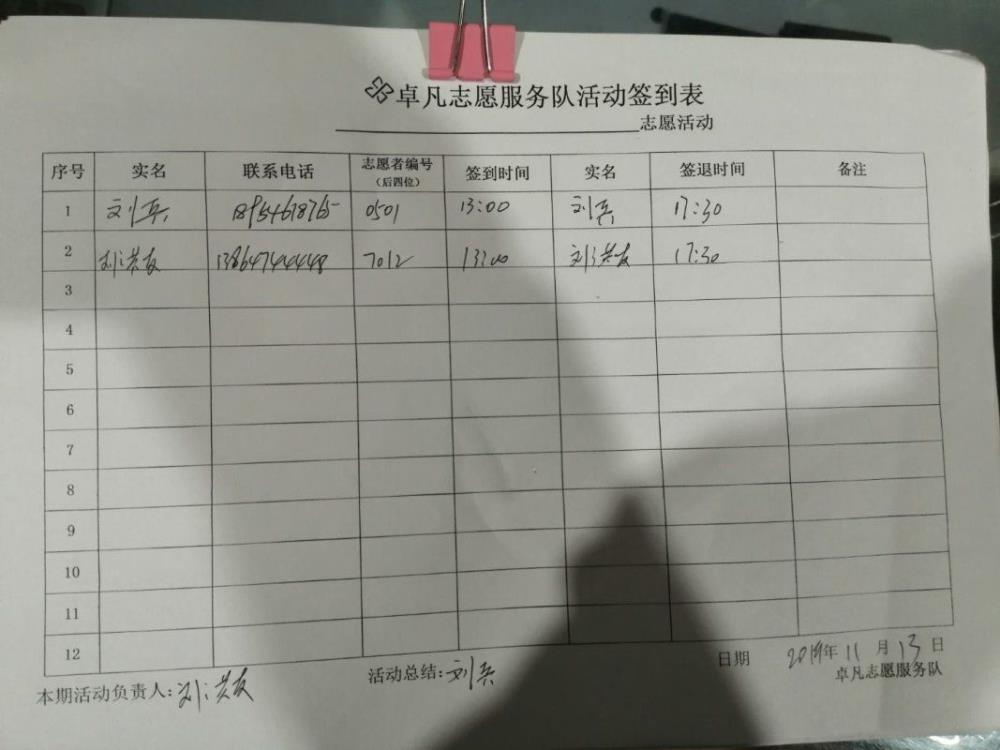 卓凡志愿服务队活动签到表
志愿活动
序号 实名 联系电话 志愿者编号（后四位） 签到时间 实名 签退时间 备注
1 刘兵 18954618765 0501 13:00 刘兵 17:30
2 刘洪友 13864744448 7012 13:00 刘洪友 17:30
3
4
5
6
7
8
9
10
11
12
日期 2019年11月13日
本期活动负责人:刘洪友 活动总结:刘兵 卓凡志愿服务队